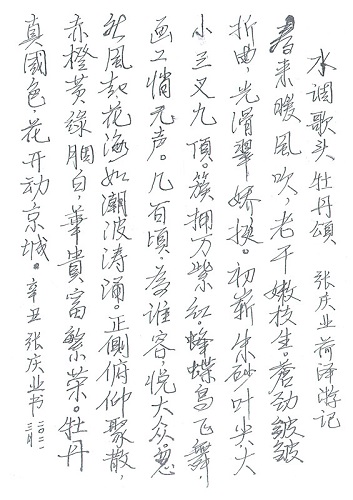 水调歌头 牡丹颂 张庆业 菏泽游记
春来暖风吹，老干嫩枝生。苍劲皱皱
折曲，光滑翠娇挺。初崭朱砂叶尖，大
小三叉九顶。簇拥万紫红。蜂蝶鸟飞舞，
画工悄无声。几百顷，为谁容，悦大众。忽
然风起，花海如潮波涛涌。正侧俯仰聚散，
赤橙黄绿胭白，華貴富繁荣。牡丹
真國色，花开动京城。辛丑 张庆业书 二〇二一 三月